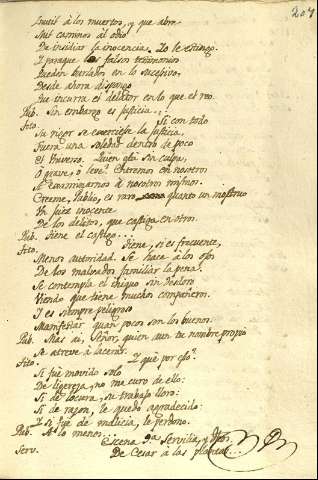 207
Insult á los muertos, y que abre
Mil caminos al odio
De insidiar la inocencia. Yo le extingo.
Y paraque los falsos testimonios
Queden burlados en lo sucesivo,
Desde ahora dispongo
Que incurra el delator en lo que el reo.
Pub. Sin embargo es justicia...
Tito. Si con todo
Su rigor se exerciese la justicia,
Fuera una soledad dentro de poco
El Universo. Quien está sin culpa,
O grave, ó leve? Entremos en nosotros
A examinarnos á nosotros mismos.
Creeme, Publio, es raro quanto un mostruo
Un juez inocente
De los delitos, que castiga en otros.
Pub. Tiene el castigo...
Tito. Tiene, si es frecuente,
Menor autoridad. Se hace á los ojos
De los malvados familiar la pena.
Se contempla el iniquo sin desdoro
Viendo que tiene muchos compañeros.
Y es siempre peligroso
Manifestar quan pocos son los buenos.
Pub. Mas ai, Señor, quien aun tu nombre propio
Se atreve á lacerar.
Tito. Y qué por eso?
Si fue movido solo
De ligereza, no me curo de ello:
Si de locura, su trabajo lloro:
Si de razon, le quedo agradecido:
Y si fue de malicia, le perdono.
Pub. A lo menos...
Scena 9.ª Servilia, y
Serv. De Cesar á las plantas...